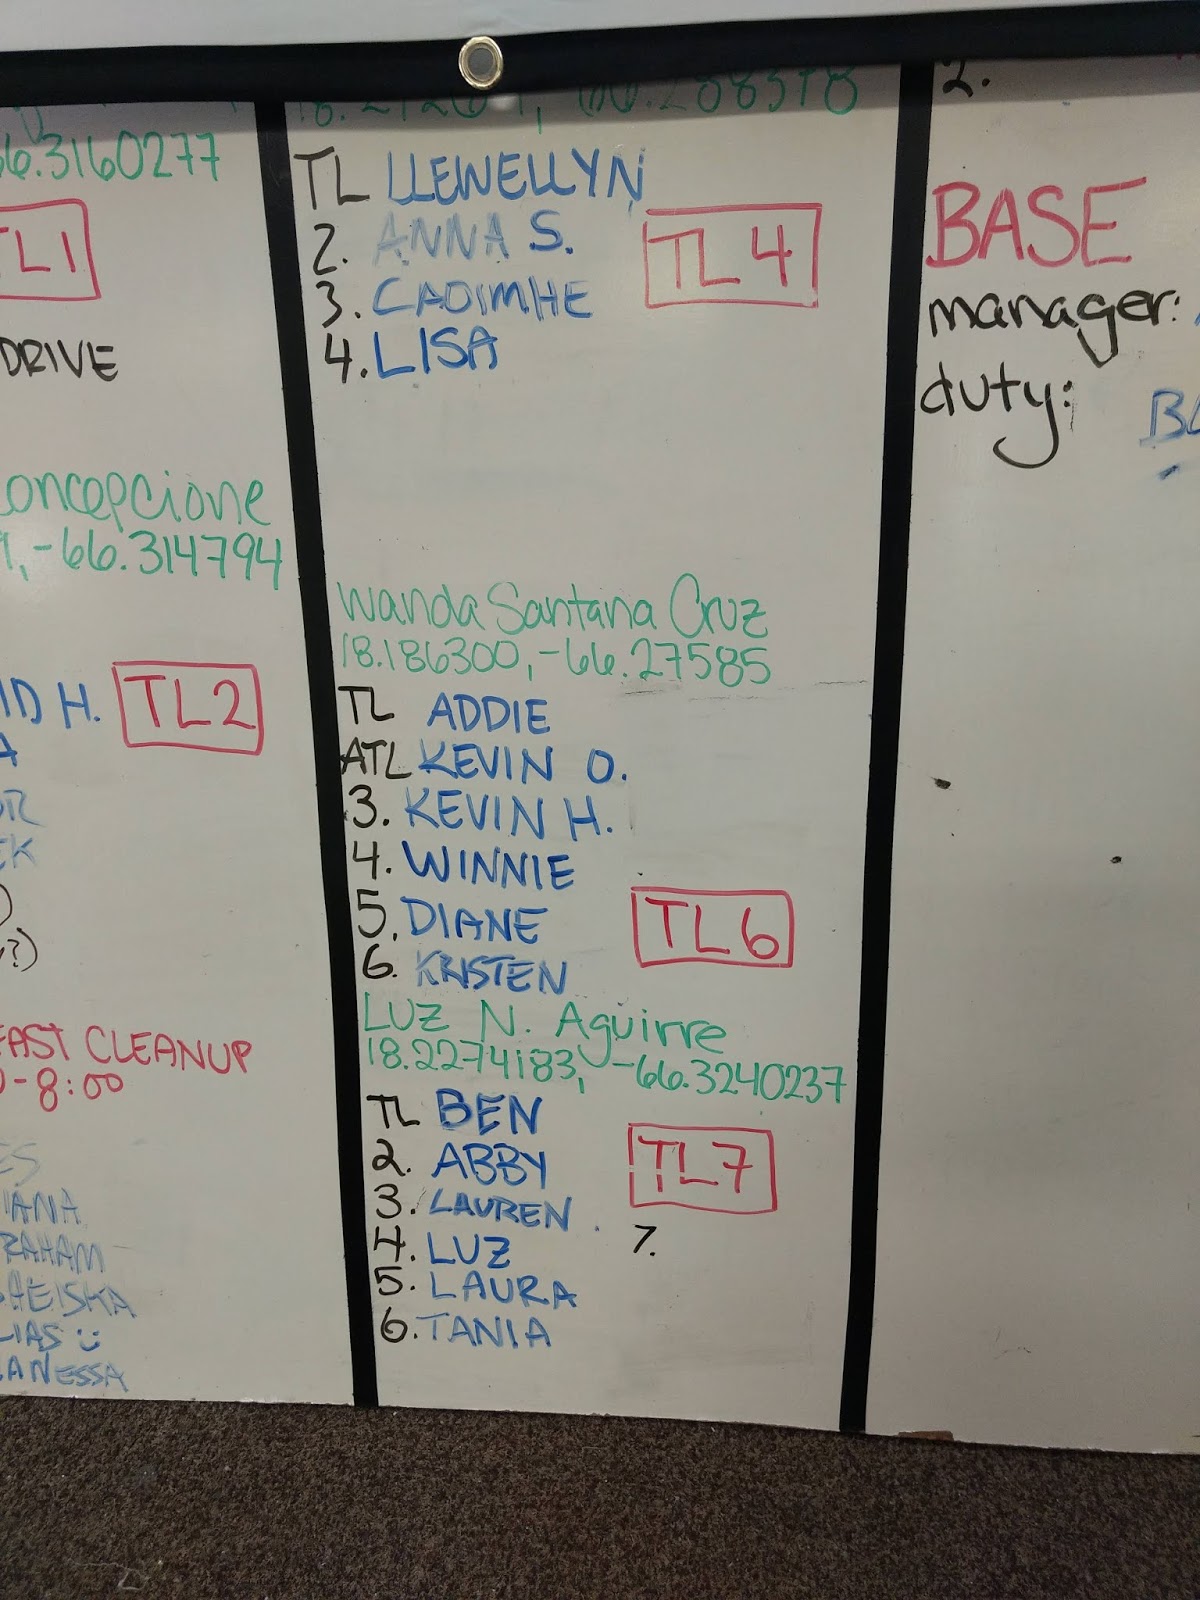 66.3160277
TL1
DRIVE
oncepcione
,-66.314794
H.
TL2
FAST CLEANUP
-8:00
IANA
RAHAM
HEISKA
LIAS
ANESSA
TL LLEWELLYN
2. ANNA S.
TL 4
3. CAOIMHE
4. LISA
Wanda Santana Cruz
18.186300,-66.27585
TL ADDIE
ATL KEVIN O.
3. KEVIN H.
4. WINNIE
5. DIANE
TL6
6. KRISTEN
LUZ N. Aguirre
18.2274183, -66.3240237
TL BEN
2. ABBY
TL7
3. LAUREN
7.
4. LUZ
5. LAURA
6. TANIA
2.
BASE
manager:
duty: